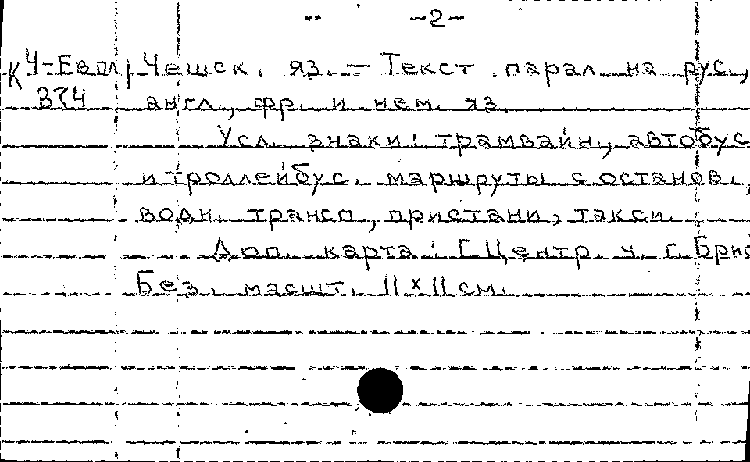 -2-
К Ч-Евпл/ Чешск. яз. – Текст парал. на рус.,
374 англ., фр. и нем. яз.
Усл. знаки: трамвайн., автобус
и троллейбус. маршруты с останов.,
водн. трансп., пристани, такси.
Доп. карта: [Центр. ч. г. Брно
Без. масшт. 11×11 см.